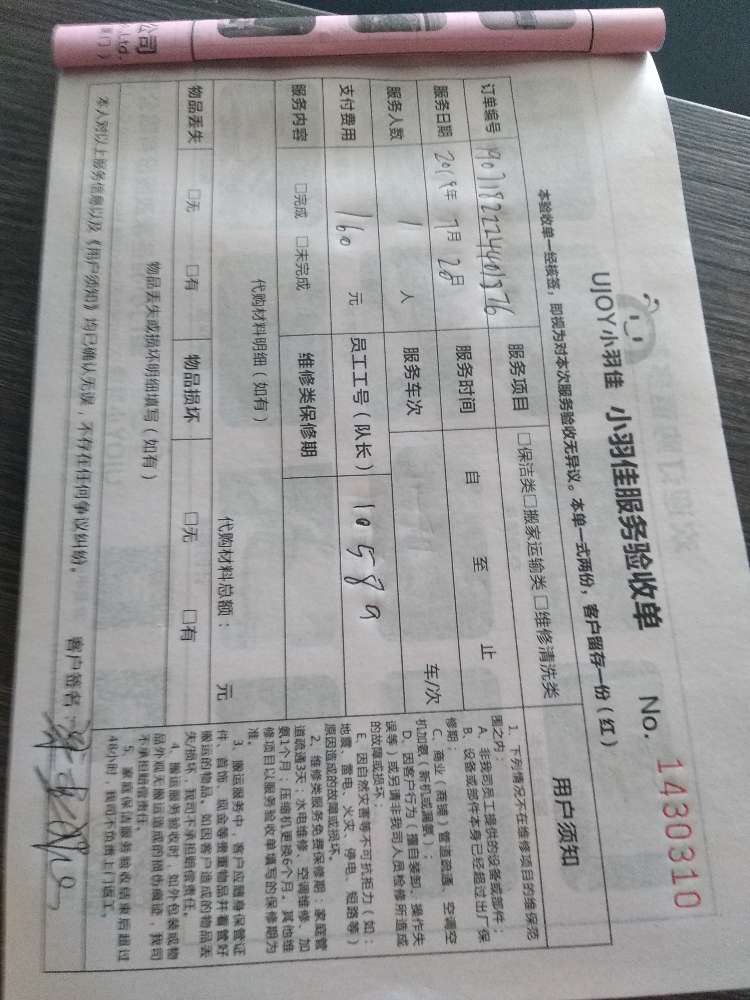 公司
.Ltd.
门）
UJOY小羽佳 小羽佳服务验收单 No. 1430310
本验收单一经核签，即视为对本次服务验收无异议。本单一式两份，客户留存一份（红）
订单编号 服务项目 □保洁类□搬家运输类□维修清洗类
服务日期 2019年 7月 28日 服务时间 自 至 止
服务人数 1 人 服务车次 车/次
支付费用 160 元 员工工号（队长） 10589
服务内容 □完成 □未完成 维修类保修期
代购材料明细（如有）
代购材料总额： 元
物品丢失 □无 □有 物品损坏 □无 □有
物品丢失或损坏明细填写（如有）
本人对以上服务信息以及《用户须知》均已确认无误，不存在任何争议纠纷。
客户签名：
用户须知
1、下列情况不在维修项目的维保范
围之内：
A、非我司员工提供的设备或部件；
B、设备或部件本身已经超过出厂保
修期；
C、商业（商铺）管道疏通、空调空
机加氨（新机或漏氨）；
D、因客户行为（擅自装卸、操作失
误等）或另请非我司人员检修所造成
的故障或损坏；
E、因自然灾害等不可抗拒力（如：
地震、雷电、火灾、停电、短路等）
原因造成的故障或损坏。
2、维修类服务免费保修期：家庭管
道疏通3天；水电维修、空调维修、加
氨1个月；压缩机更换6个月。其他维
修项目以服务验收单填写的保修期为
准。
3、搬运服务中，客户应随身保管证
件、首饰、现金等贵重物品并看管好
搬运的物品。如因客户造成的物品丢
失/损坏，我司不承担赔偿责任。
4、搬运服务验收时，如外包装或物
品外观无搬运造成的损伤痕迹，我司
不承担赔偿责任。
5、家庭保洁服务验收结束后超过
48小时，我司不负责上门返工。